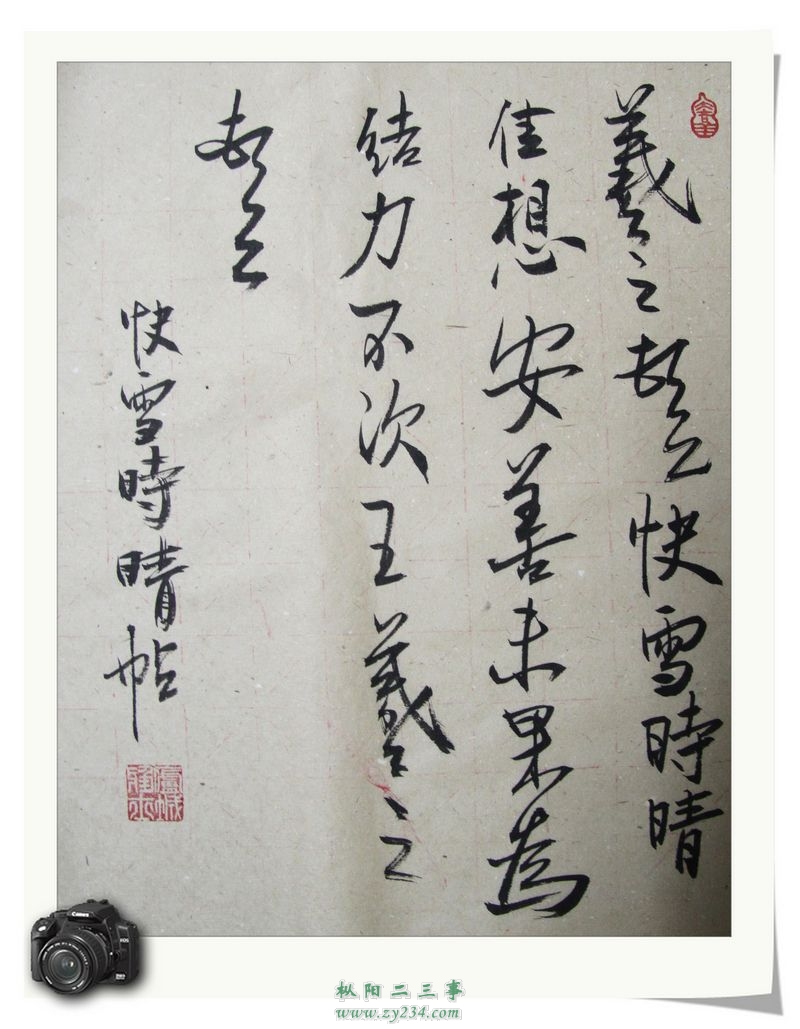 羲之頓首快雪時晴
佳想安善未果為
結力不次王羲之
頓首
快雪時晴帖
Canon
EOS
枞阳二三事
www.zy234.com